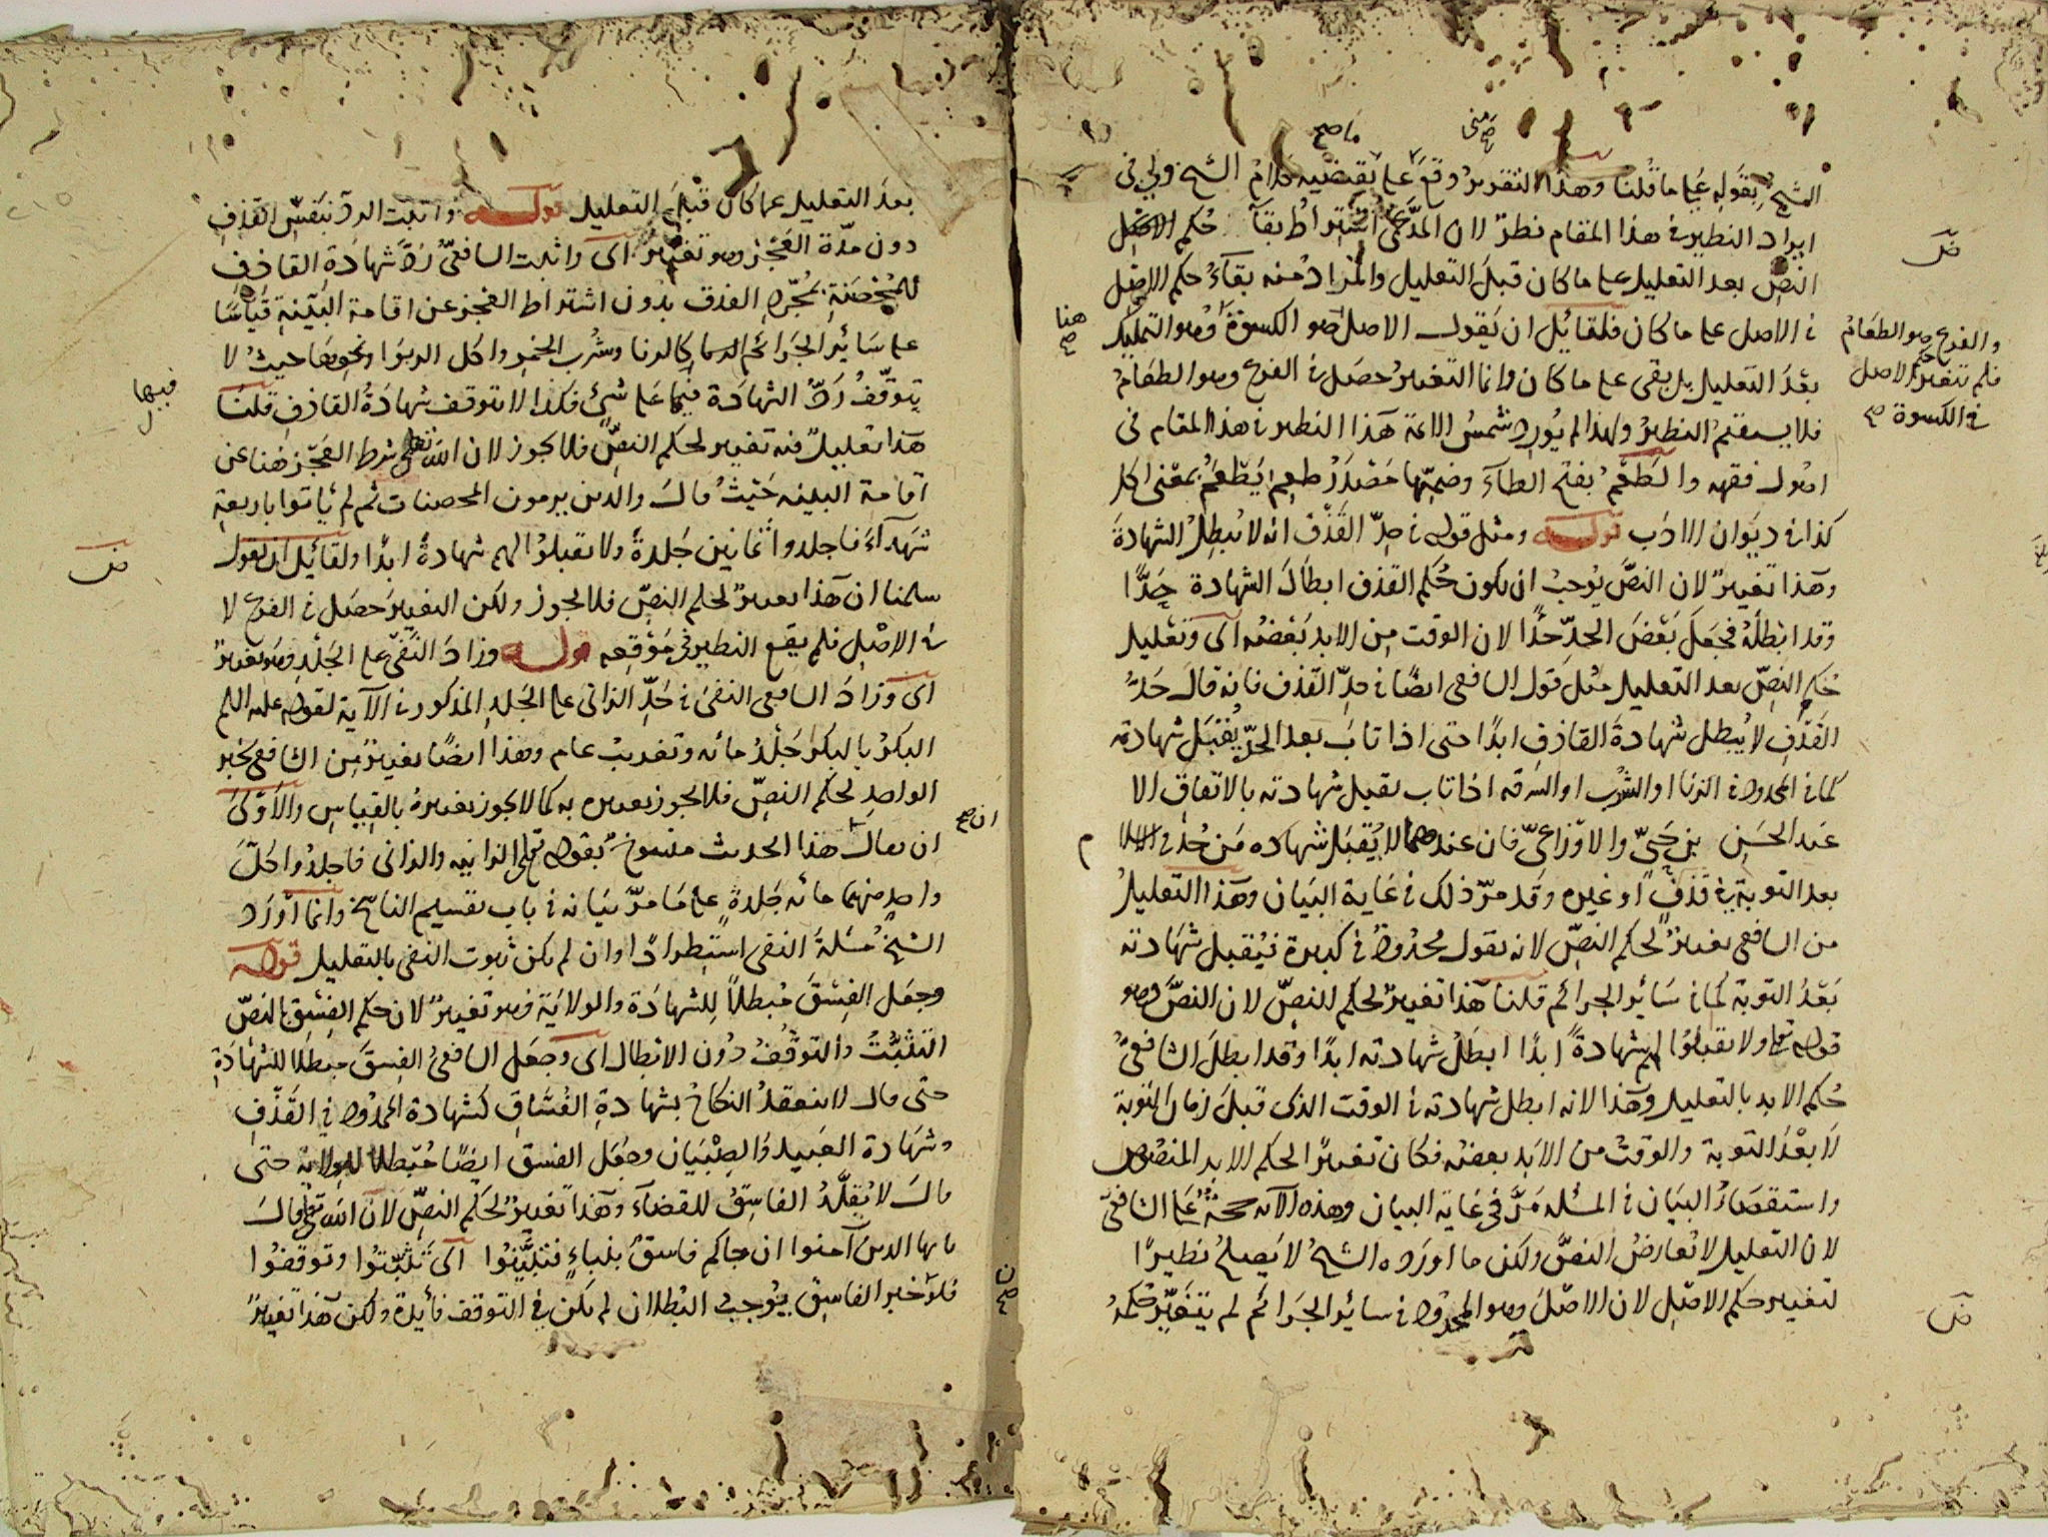 الشيخ بقوله على ما قلنا وهذا التقرير وقع على يقتضيه كلام الشيخ ولي في
ما صح
مني صح
ايراد النظير في هذا المقام نظر لان المدعى اشتراط بقآء حكم الاصل
النص بعد التعليل على ما كان قبل التعليل والمراد منه بقآء حكم الاصل
في الاصل على ما كان فلقائل ان يقول الاصل هو الكسوة وهو التمليك
هنا صح
والفرع وهو الطعام
فلم تتغير حكم الاصل
في الكسوة صح
بعد التعليل بل يبقى على ما كان وانما التغيير حصل في الفرع وهو الطعام
فلا يستقيم النظير ولهذا لم يورد شمس الائمة هذا النظير في هذا المقام في
اصول فقهه والطعم بفتح الطآء وضمها مصدر طعم يطعم بمعنى اكل
كذا في ديوان الادب قوله ومثل قوله في حد القذف انه لا يبطل الشهادة
وهذا تغيير لان النص يوجب ان يكون حكم القذف ابطال الشهادة حدا
وقد ابطله فجعل بعض الحد حدا لان الوقت من الابد بعضه اى وتعليل
حكم النص بعد التعليل مثل قول الشافعى ايضا في حد القذف فانه قال حد
القذف لا يبطل شهادة القاذف ابدا حتى اذا تاب بعد الحد يقبل شهادته
كما في المحدود في الزنا او الشرب او السرقه اذا تاب يقبل شهادته بالاتفاق الا
عند الحسن بن حي والاوزاعي فان عندهما لا يقبل شهاده من حد في الاسلام
بعد التوبة في قذف او غيره وقد مر ذلك في غاية البيان وهذا التعليل
من الشافعى تغيير لحكم النص لانه يقول محدود في كبيرة فيقبل شهادته
بعد التوبة كما في سائر الجرائم قلنا هذا تغيير لحكم النص لان النص وهو
قوله تعالى ولا تقبلوا لهم شهادة ابدا ابطل شهادته ابدا وقد ابطل الشافعى
حكم الابد بالتعليل وهذا لانه ابطل شهادته في الوقت الذى قبل زمان التوبة
لا بعد التوبة والوقت من الابد بعضه فكان تغييرا لحكم الابد المنصوص
واستقصاء البيان في المسئله مر في غاية البيان وهذه الآيه حجة على الشافعى
لان التعليل لا يعارض النص ولكن ما اورده الشيخ لا يصلح نظيرا
لتغيير حكم الاصل لان الاصل وهو المحدود في سائر الجرائم لم يتغير حكمه
بعد التعليل عما كان قبل التعليل قوله واثبت الرد بنفس القذف
دون مدة العجز وهو تغيير اى واثبت الشافعى رد شهادة القاذف
للمحصنة بمجرد القذف بدون اشتراط العجز عن اقامة البينة قياسا
على سائر الجرائم كالزنا وشرب الخمر واكل الربوا ونحوها حيث لا
يتوقف رد الشهادة فيها على شئ فكذا لا يتوقف شهادة القاذف قلنا
فيها
هذا تعليل فيه تغيير لحكم النص فلا يجوز لان الله تعالى شرط العجز هنا عن
اقامة البينه حيث قال والذين يرمون المحصنات ثم لم ياتوا باربعة
شهدآء فاجلدوا ثمانين جلدة ولا تقبلوا لهم شهادة ابدا ولقائل ان يقول
سلمنا ان هذا تغيير لحكم النص فلا يجوز ولكن التغيير حصل في الفرع لا
في الاصل فلم يقع النظير في موقعه قوله وزاد النفى على الجلد وهو تغيير
اى وزاد الشافعى النفى في حد الزانى على الجلد المذكور في الآية لقوله عليه السلم
البكر بالبكر جلد مائه وتغريب عام وهذا ايضا تغيير من الشافعى بخبر
الواحد لحكم النص فلا يجوز تغييره به كما لا يجوز تغييره بالقياس والاولى
ان صح
ان يقال هذا الحديث منسوخ بقوله تعالى الزانيه والزانى فاجلدوا كل
واحد منهما مائه جلدة على ما مر بيانه في باب تقسيم الناسخ وانما اورد
الشيخ مسئلة النفى استطرادا وان لم يكن ثبوت النفى بالتعليل قوله
وجعل الفسق مبطلا للشهادة والولاية وهو تغيير لان حكم الفسق بالنص
التثبت والتوقف دون الابطال اى وجعل الشافعى الفسق مبطلا للشهادة
حتى قال لا ينعقد النكاح بشهادة الفساق كشهادة المحدود في القذف
وشهادة العبيد والصبيان وجعل الفسق ايضا مبطلا للولاية حتى
قال لا يقلد الفاسق للقضآء وهذا تغيير لحكم النص لان الله تعالى قال
يا يها الذين آمنوا ان جاكم فاسق بنباء فتبينوا اى تثبتوا وتوقفوا
فلو خبر الفاسق يوجب البطلان لم يكن في التوقف فائدة ولكن هذا تغيير